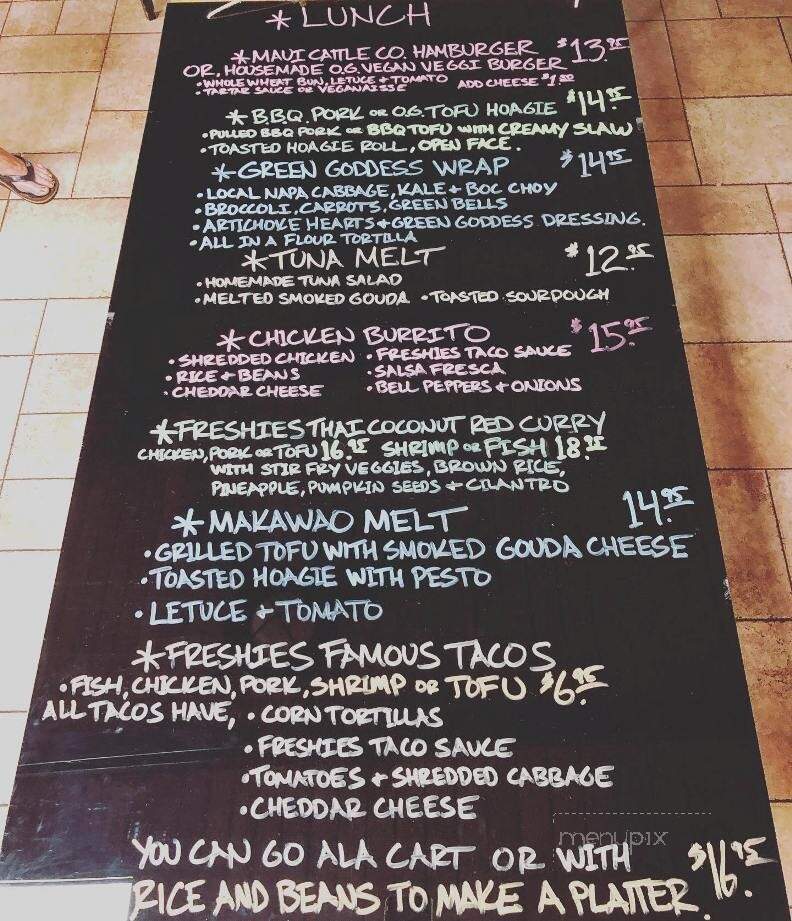 * LUNCH
* MAUI CATTLE CO. HAMBURGER $13.95
OR, HOUSEMADE O.G. VEGAN VEGGI BURGER
• WHOLE WHEAT BUN, LETUCE + TOMATO ADD CHEESE $1.50
• TARTAR SAUCE OR VEGANAISSE
* B.B.Q. PORK OR O.G. TOFU HOAGIE $14.95
• PULLED BBQ PORK OR BBQ TOFU WITH CREAMY SLAW
• TOASTED HOAGIE ROLL, OPEN FACE.
* GREEN GODDESS WRAP $14.95
• LOCAL NAPA CABBAGE, KALE + BOC CHOY
• BROCCOLI, CARROTS, GREEN BELLS
• ARTICHOKE HEARTS + GREEN GODDESS DRESSING.
• ALL IN A FLOUR TORTILLA
* TUNA MELT $12.95
• HOMEMADE TUNA SALAD
• MELTED SMOKED GOUDA • TOASTED SOURDOUGH
* CHICKEN BURRITO $15.95
• SHREDDED CHICKEN • FRESHIES TACO SAUCE
• RICE + BEANS • SALSA FRESCA
• CHEDDAR CHEESE • BELL PEPPERS + ONIONS
* FRESHIES THAI COCONUT RED CURRY
CHICKEN, PORK OR TOFU 16.95 SHRIMP OR FISH 18.95
WITH STIR FRY VEGGIES, BROWN RICE,
PINEAPPLE, PUMPKIN SEEDS + CILANTRO
* MAKAWAO MELT 14.95
• GRILLED TOFU WITH SMOKED GOUDA CHEESE
• TOASTED HOAGIE WITH PESTO
• LETUCE + TOMATO
* FRESHIES FAMOUS TACOS
• FISH, CHICKEN, PORK, SHRIMP OR TOFU $6.95
ALL TACOS HAVE, • CORN TORTILLAS
• FRESHIES TACO SAUCE
• TOMATOES + SHREDDED CABBAGE
• CHEDDAR CHEESE
menupix
YOU CAN GO ALA CART OR WITH
RICE AND BEANS TO MAKE A PLATTER $16.95